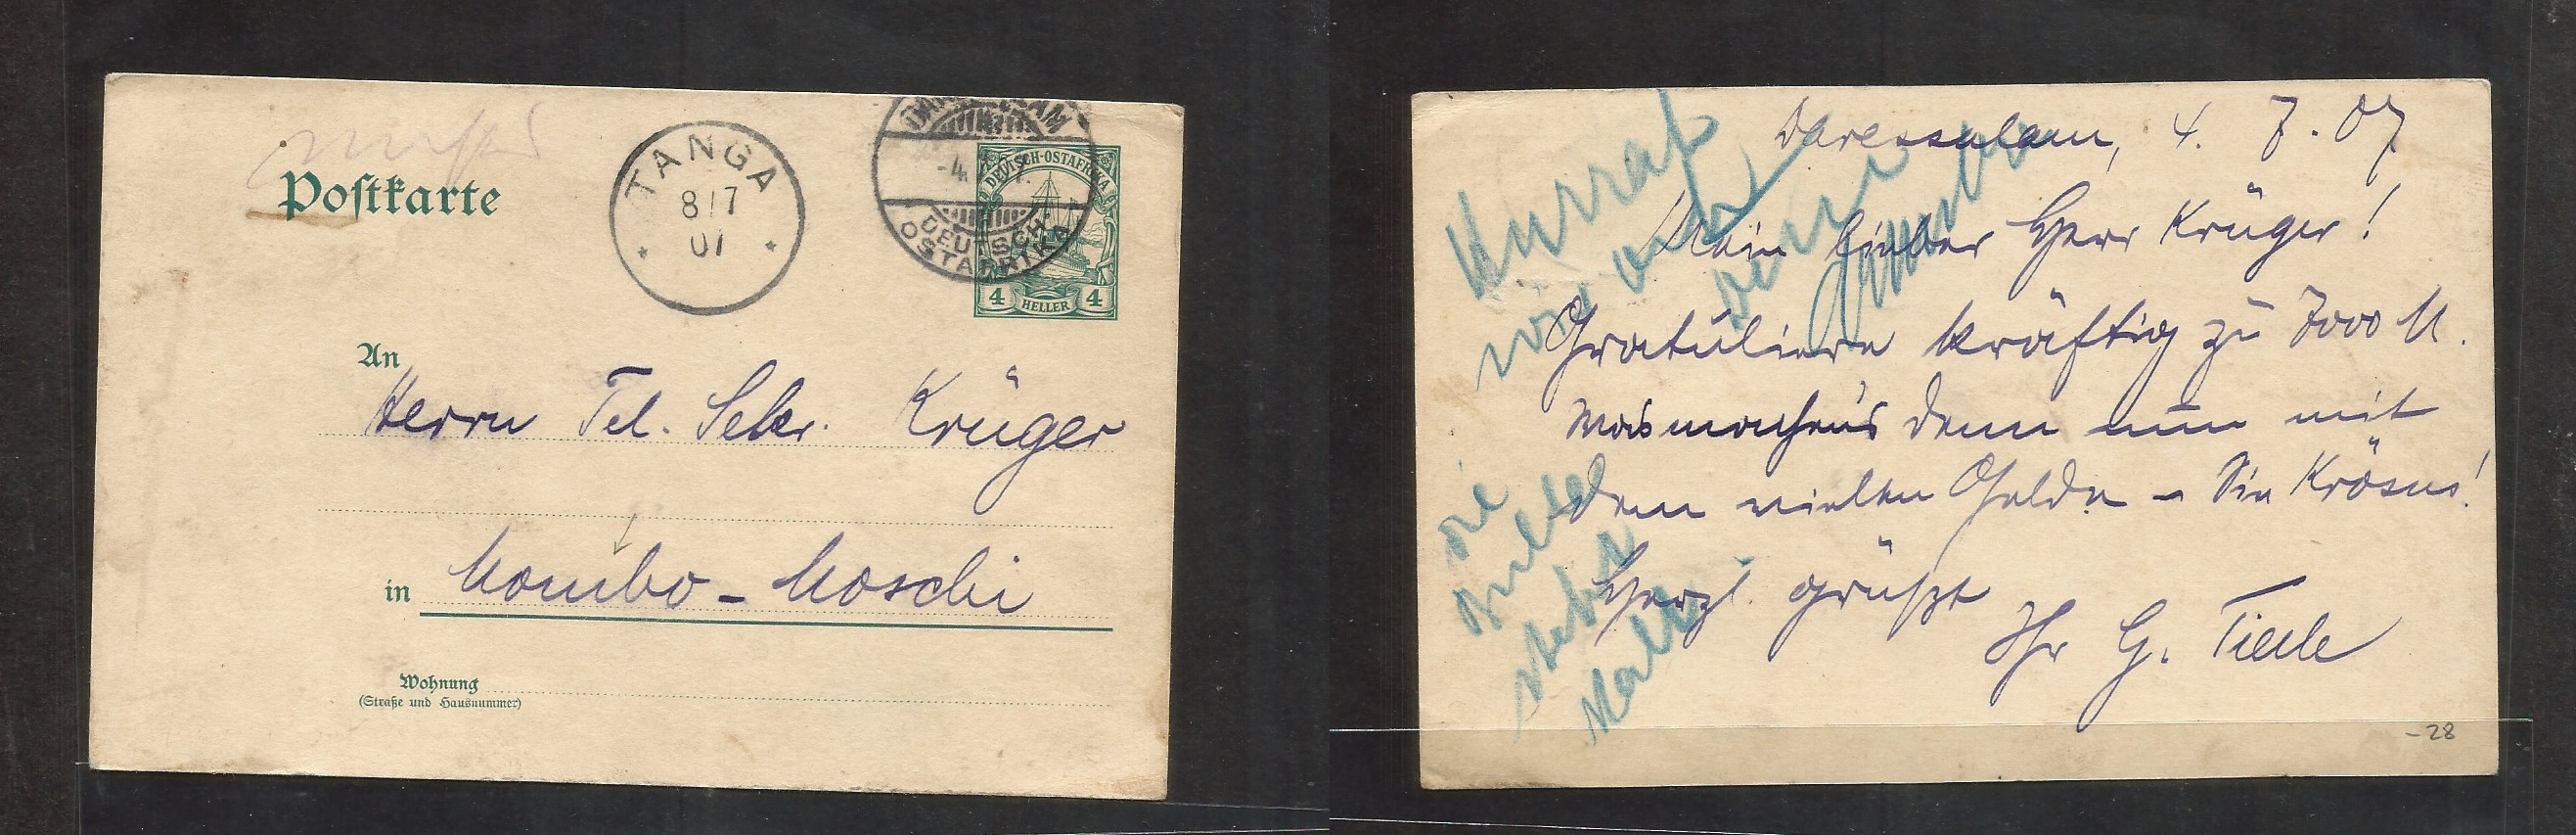 Postkarte
TANGA
8/7
07
DEUTSCH-
OSTAFRIKA
DEUTSCH-OSTAFRIKA
4 HELLER 4
An
Herrn Tel. Sekr. Krüger
in Mombo - Moschi
Wohnung
(Straße und Hausnummer)
Daressalam, 4. 7. 07
Mein lieber Herr Krüger!
Gratuliere kräftig zu 7000 M.
Was machen's denn nun mit
dem vielen Gelde - Sie Krösus!
Herzl. grüßt
Ihr G.
Hurrah
die
-28